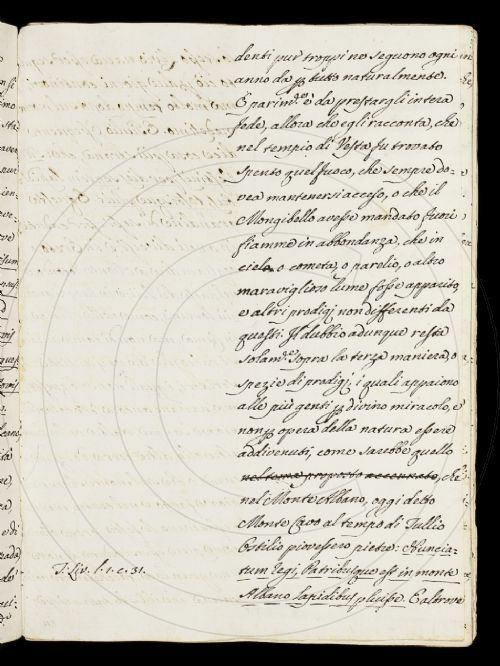 denti pur troppi no seguono ogni
anno da per tutto naturalmente.
E parim.te è da prestargli intera
fede, allora che egli racconta, che
nel tempio di Vesta fu trovato
spento quel fuoco, che sempre do-
vea mantenersi acceso, o che il
Mongibello avesse mandato fuori
fiamme in abbondanza, che in
cielo, o cometa, o parelio, o altro
maraviglioso lume fosse apparito,
e altri prodigi non differenti da
questi. Il dubbio adunque resta
solam.te sopra la terza maniera, o
spezie di prodigi, i quali appaiono
alle più genti per divino miracolo, e
non per opera della natura essere
addivenuti, come sarebbe quello
nel tema proposto accennato, che
nel Monte Albano, oggi detto
Monte Cavo al tempo di Tullio
Ostilio piovessero pietre: Nuncia-
T. Liv. l. 1. c. 31.
tum Regi, Patribusque est in monte
Albano lapidibus pluisse. E altrove